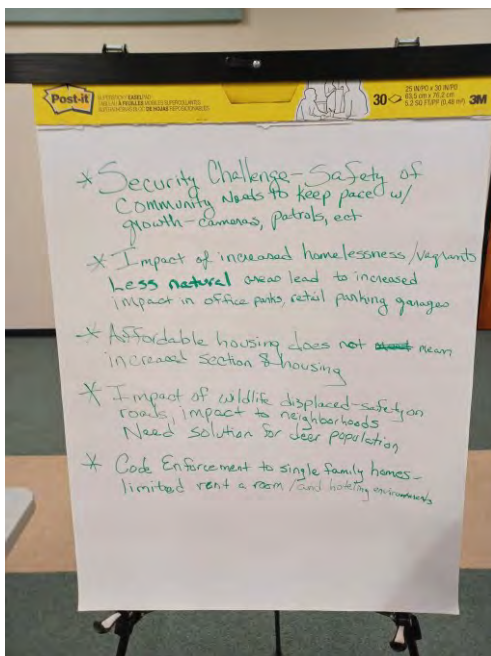 Post-it
SUPERSTICKY EASEL PAD
30
25 IN/PO x 30 IN/PO
63,5 cm x 76,2 cm
5.2 SQ FT/PI² (0,48 m²)
3M
* Security Challenge - Safety of
Community Needs to keep pace w/
growth - cameras, patrols, ect
* Impact of increased homelessness/vagrants
Less natural areas lead to increased
impact in office parks, retail parking garages
* Affordable housing does not mean
increased section 8 housing
* Impact of wildlife displaced - safety on
roads, impact to neighborhoods
Need solution for deer population
* Code Enforcement to single family homes -
limited rent a room / and hoteling environments